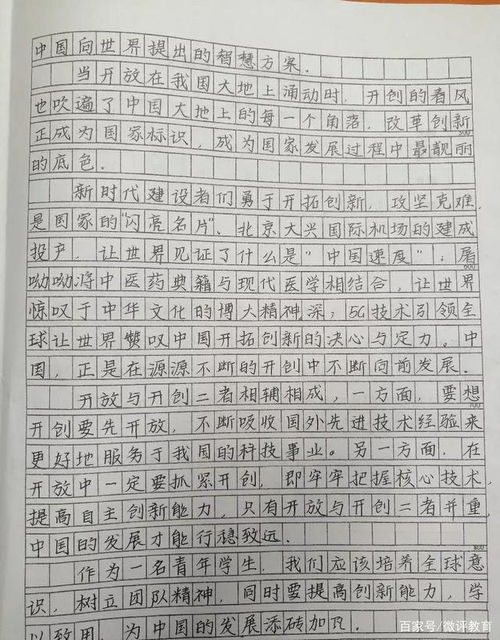 中国向世界提出的智慧方案.
当开放在我国大地上涌动时, 开创的春风
也吹遍了中国大地上的每一个角落, 改革创新
正成为国家标识, 成为国家发展过程中最靓丽
的底色.
新时代建设者们勇于开拓创新, 攻坚克难,
是国家的"闪亮名片". 北京大兴国际机场的建成
投产, 让世界见证了什么是"中国速度"; 屠
呦呦将中医药典籍与现代医学相结合, 让世界
惊叹于中华文化的博大精神深; 5G技术引领全
球让世界赞叹中国开拓创新的决心与定力。中
国, 正是在源源不断的开创中不断向前发展.
开放与开创二者相辅相成, 一方面, 要想
开创要先开放, 不断吸收国外先进技术经验来
更好地服务于我国的科技事业。另一方面, 在
开放中一定要抓紧开创, 即牢牢把握核心技术,
提高自主创新能力, 只有开放与开创二者并重,
中国的发展才能行稳致远.
作为一名青年学生, 我们应该培养全球意
识, 树立团队精神, 同时要提高创新能力, 学
以致用, 为中国的发展添砖加瓦.
百家号/微评教育